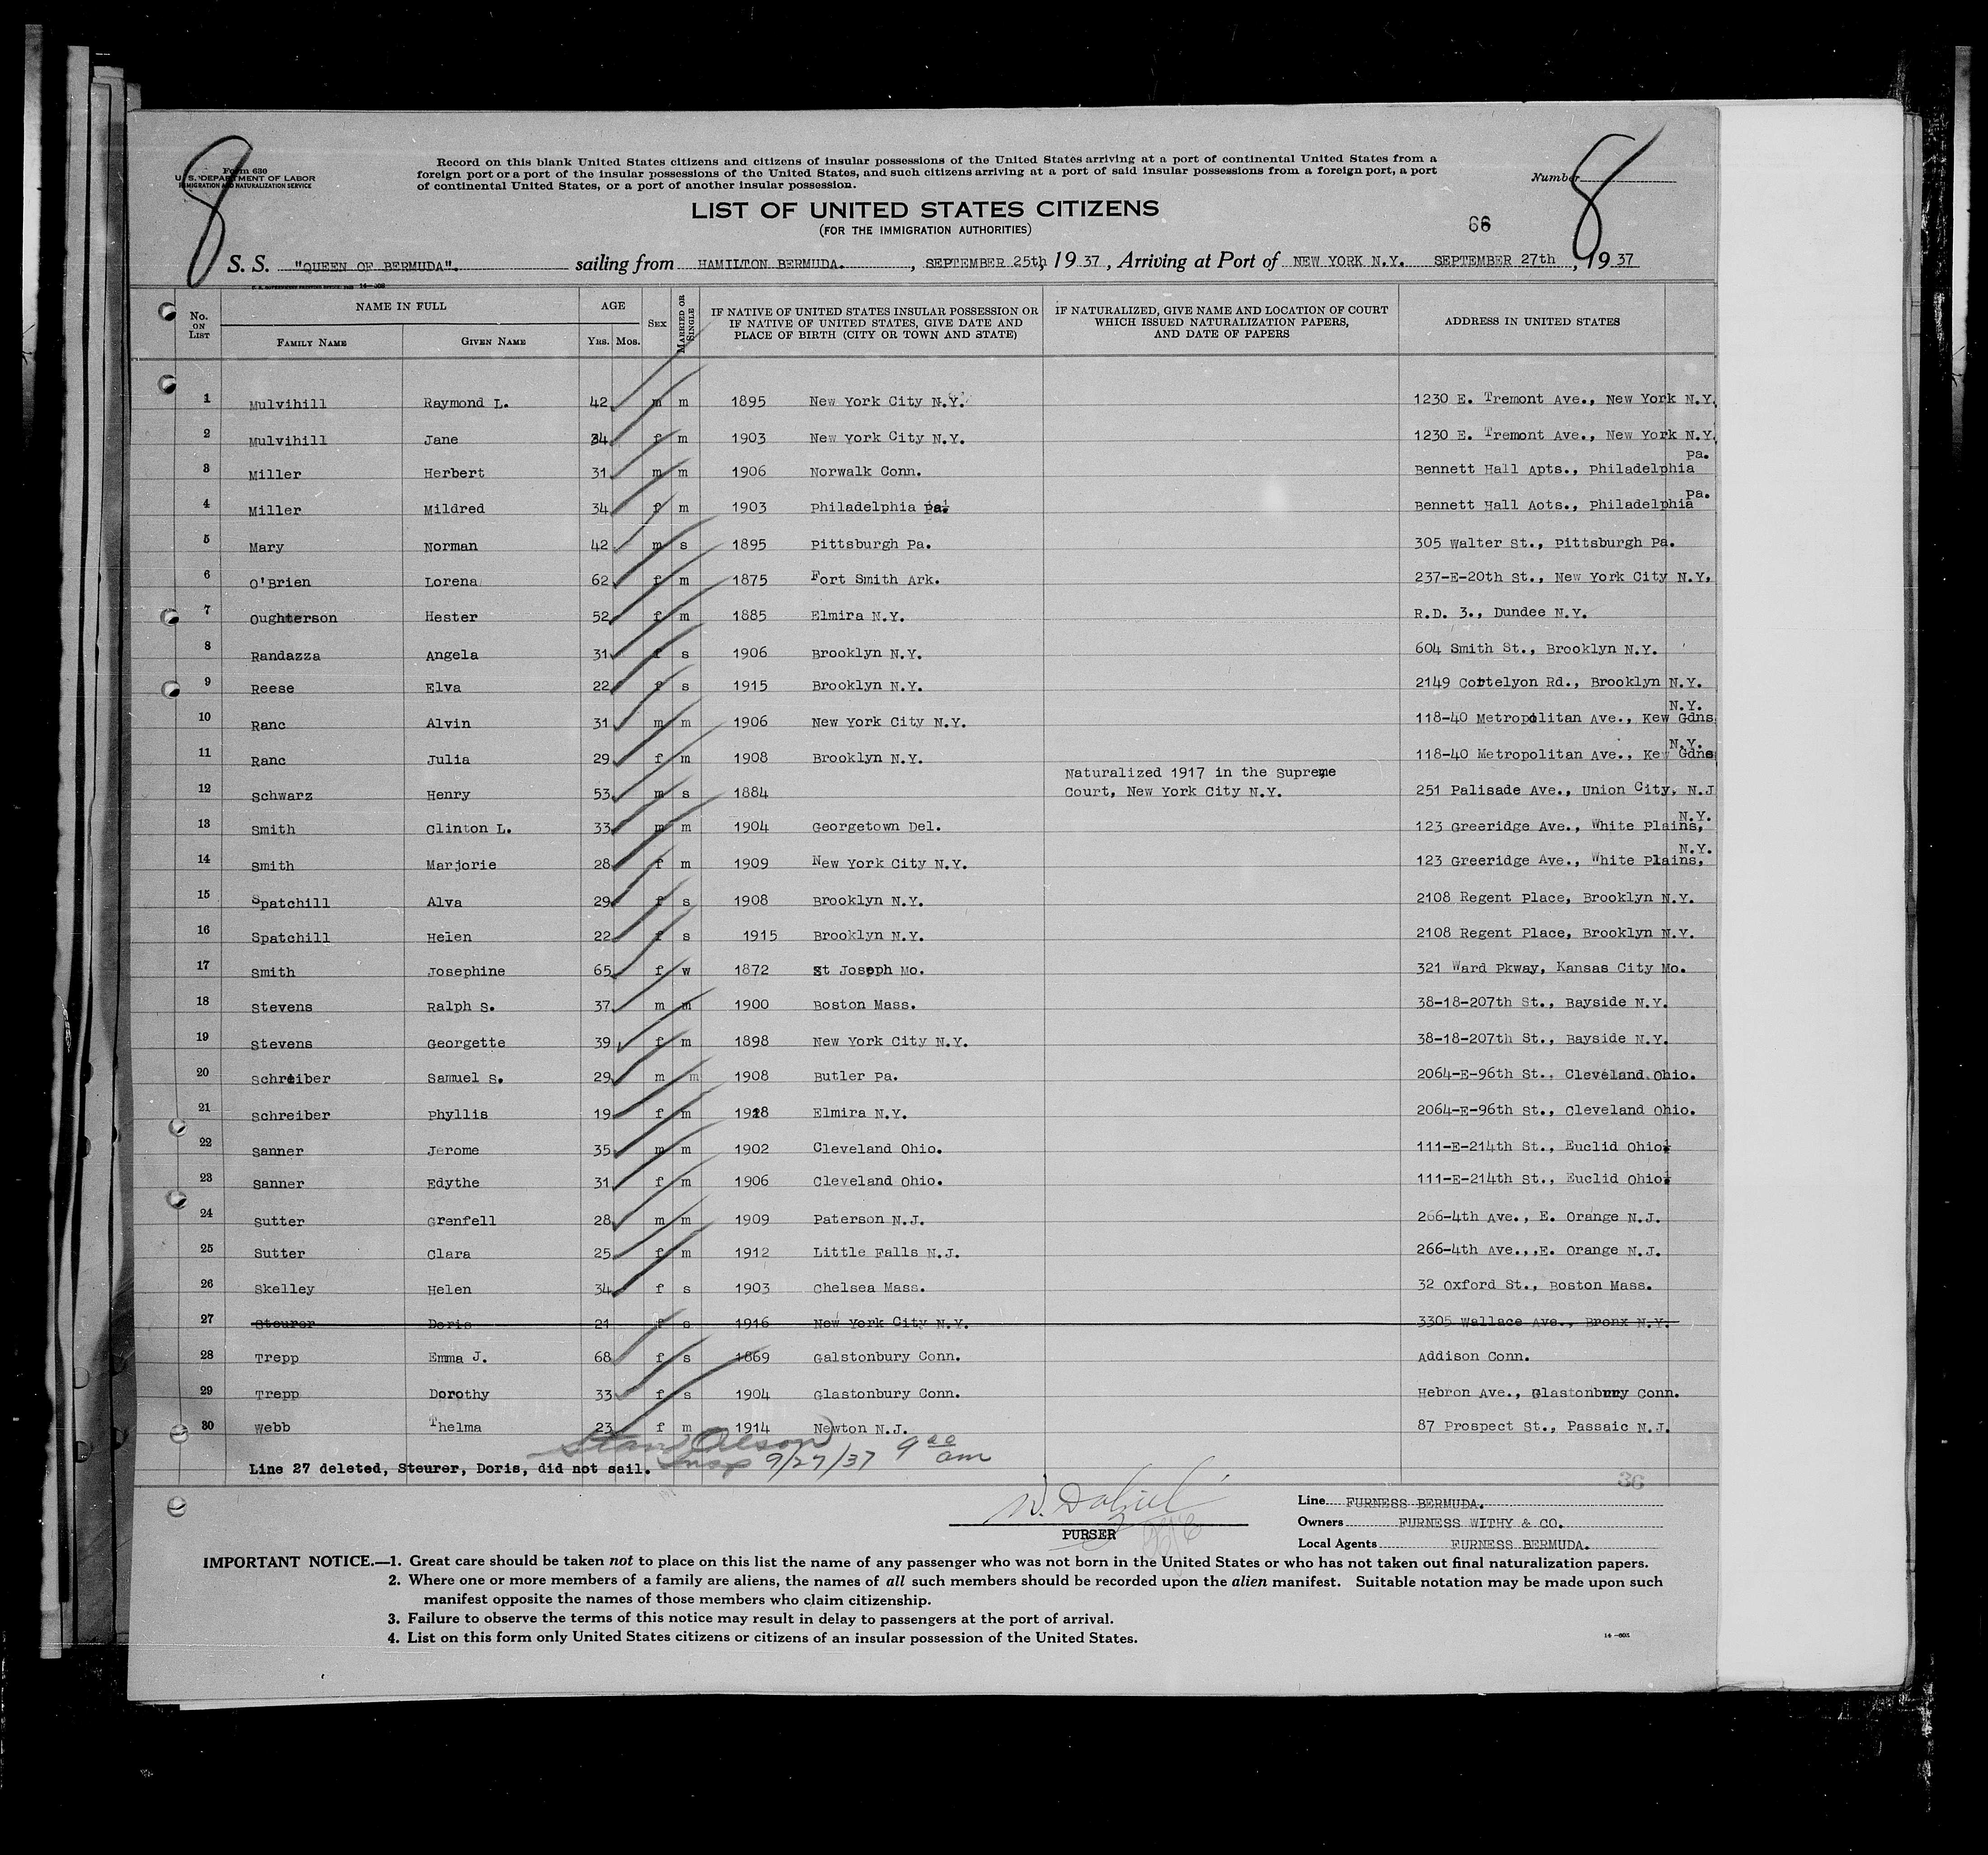 8
8
Form 630
U. S. DEPARTMENT OF LABOR
IMMIGRATION AND NATURALIZATION SERVICE
Record on this blank United States citizens and citizens of insular possessions of the United States arriving at a port of continental United States from a
foreign port or a port of the insular possessions of the United States, and such citizens arriving at a port of said insular possessions from a foreign port, a port
of continental United States, or a port of another insular possession.
Number
LIST OF UNITED STATES CITIZENS
(FOR THE IMMIGRATION AUTHORITIES)
66
S. S. "QUEEN OF BERMUDA". sailing from HAMILTON BERMUDA. , SEPTEMBER 25th, 19 37, Arriving at Port of NEW YORK N.Y. SEPTEMBER 27th , 19 37
No. ON LIST
NAME IN FULL
FAMILY NAME
GIVEN NAME
AGE
YRS. MOS.
SEX
MARRIED OR SINGLE
IF NATIVE OF UNITED STATES INSULAR POSSESSION OR
IF NATIVE OF UNITED STATES, GIVE DATE AND
PLACE OF BIRTH (CITY OR TOWN AND STATE)
IF NATURALIZED, GIVE NAME AND LOCATION OF COURT
WHICH ISSUED NATURALIZATION PAPERS,
AND DATE OF PAPERS
ADDRESS IN UNITED STATES
1 Mulvihill Raymond L. 42 m m 1895 New York City N.Y. 1230 E. Tremont Ave., New York N.Y.
2 Mulvihill Jane 34 f m 1903 New York City N.Y. 1230 E. Tremont Ave., New York N.Y.
3 Miller Herbert 31 m m 1906 Norwalk Conn. Bennett Hall Apts., Philadelphia Pa.
4 Miller Mildred 34 f m 1903 Philadelphia Pa. Bennett Hall Aots., Philadelphia Pa.
5 Mary Norman 42 m s 1895 Pittsburgh Pa. 305 Walter St., Pittsburgh Pa.
6 O'Brien Lorena 62 f m 1875 Fort Smith Ark. 237-E-20th St., New York City N.Y.
7 Oughterson Hester 52 f m 1885 Elmira N.Y. R.D. 3., Dundee N.Y.
8 Randazza Angela 31 f s 1906 Brooklyn N.Y. 604 Smith St., Brooklyn N.Y.
9 Reese Elva 22 f s 1915 Brooklyn N.Y. 2149 Cortelyon Rd., Brooklyn N.Y.
10 Ranc Alvin 31 m m 1906 New York City N.Y. 118-40 Metropolitan Ave., Kew Gdns N.Y.
11 Ranc Julia 29 f m 1908 Brooklyn N.Y. 118-40 Metropolitan Ave., Kew Gdns N.Y.
Naturalized 1917 in the Supreme
12 Schwarz Henry 53 m s 1884 Court, New York City N.Y. 251 Palisade Ave., Union City, N.J
13 Smith Clinton L. 33 m m 1904 Georgetown Del. 123 Greeridge Ave., White Plains, N.Y.
14 Smith Marjorie 28 f m 1909 New York City N.Y. 123 Greeridge Ave., White Plains, N.Y.
15 Spatchill Alva 29 f s 1908 Brooklyn N.Y. 2108 Regent Place, Brooklyn N.Y.
16 Spatchill Helen 22 f s 1915 Brooklyn N.Y. 2108 Regent Place, Brooklyn N.Y.
17 Smith Josephine 65 f w 1872 St Joseph Mo. 321 Ward Pkway, Kansas City Mo.
18 Stevens Ralph S. 37 m m 1900 Boston Mass. 38-18-207th St., Bayside N.Y.
19 Stevens Georgette 39 f m 1898 New York City N.Y. 38-18-207th St., Bayside N.Y.
20 Schreiber Samuel S. 29 m m 1908 Butler Pa. 2064-E-96th St., Cleveland Ohio.
21 Schreiber Phyllis 19 f m 1918 Elmira N.Y. 2064-E-96th St., Cleveland Ohio.
22 Sanner Jerome 35 m m 1902 Cleveland Ohio. 111-E-214th St., Euclid Ohio.
23 Sanner Edythe 31 f m 1906 Cleveland Ohio. 111-E-214th St., Euclid Ohio.
24 Sutter Grenfell 28 m m 1909 Paterson N.J. 266-4th Ave., E. Orange N.J.
25 Sutter Clara 25 f m 1912 Little Falls N.J. 266-4th Ave.,,E. Orange N.J.
26 Skelley Helen 34 f s 1903 Chelsea Mass. 32 Oxford St., Boston Mass.
27 Steurer Doris 21 f s 1916 New York City N.Y. 3305 Wallace Ave., Bronx N.Y.
28 Trepp Emma J. 68 f s 1869 Galstonbury Conn. Addison Conn.
29 Trepp Dorothy 33 f s 1904 Glastonbury Conn. Hebron Ave., Glastonbury Conn.
30 Webb Thelma 23 f m 1914 Newton N.J. 87 Prospect St., Passaic N.J.
Olson
Insp 9/27/37 9 00 am
Line 27 deleted, Steurer, Doris, did not sail.
36
PURSER
Line FURNESS BERMUDA.
Owners FURNESS WITHY & CO.
Local Agents FURNESS BERMUDA.
IMPORTANT NOTICE.—1. Great care should be taken not to place on this list the name of any passenger who was not born in the United States or who has not taken out final naturalization papers.
2. Where one or more members of a family are aliens, the names of all such members should be recorded upon the alien manifest. Suitable notation may be made upon such
manifest opposite the names of those members who claim citizenship.
3. Failure to observe the terms of this notice may result in delay to passengers at the port of arrival.
4. List on this form only United States citizens or citizens of an insular possession of the United States.